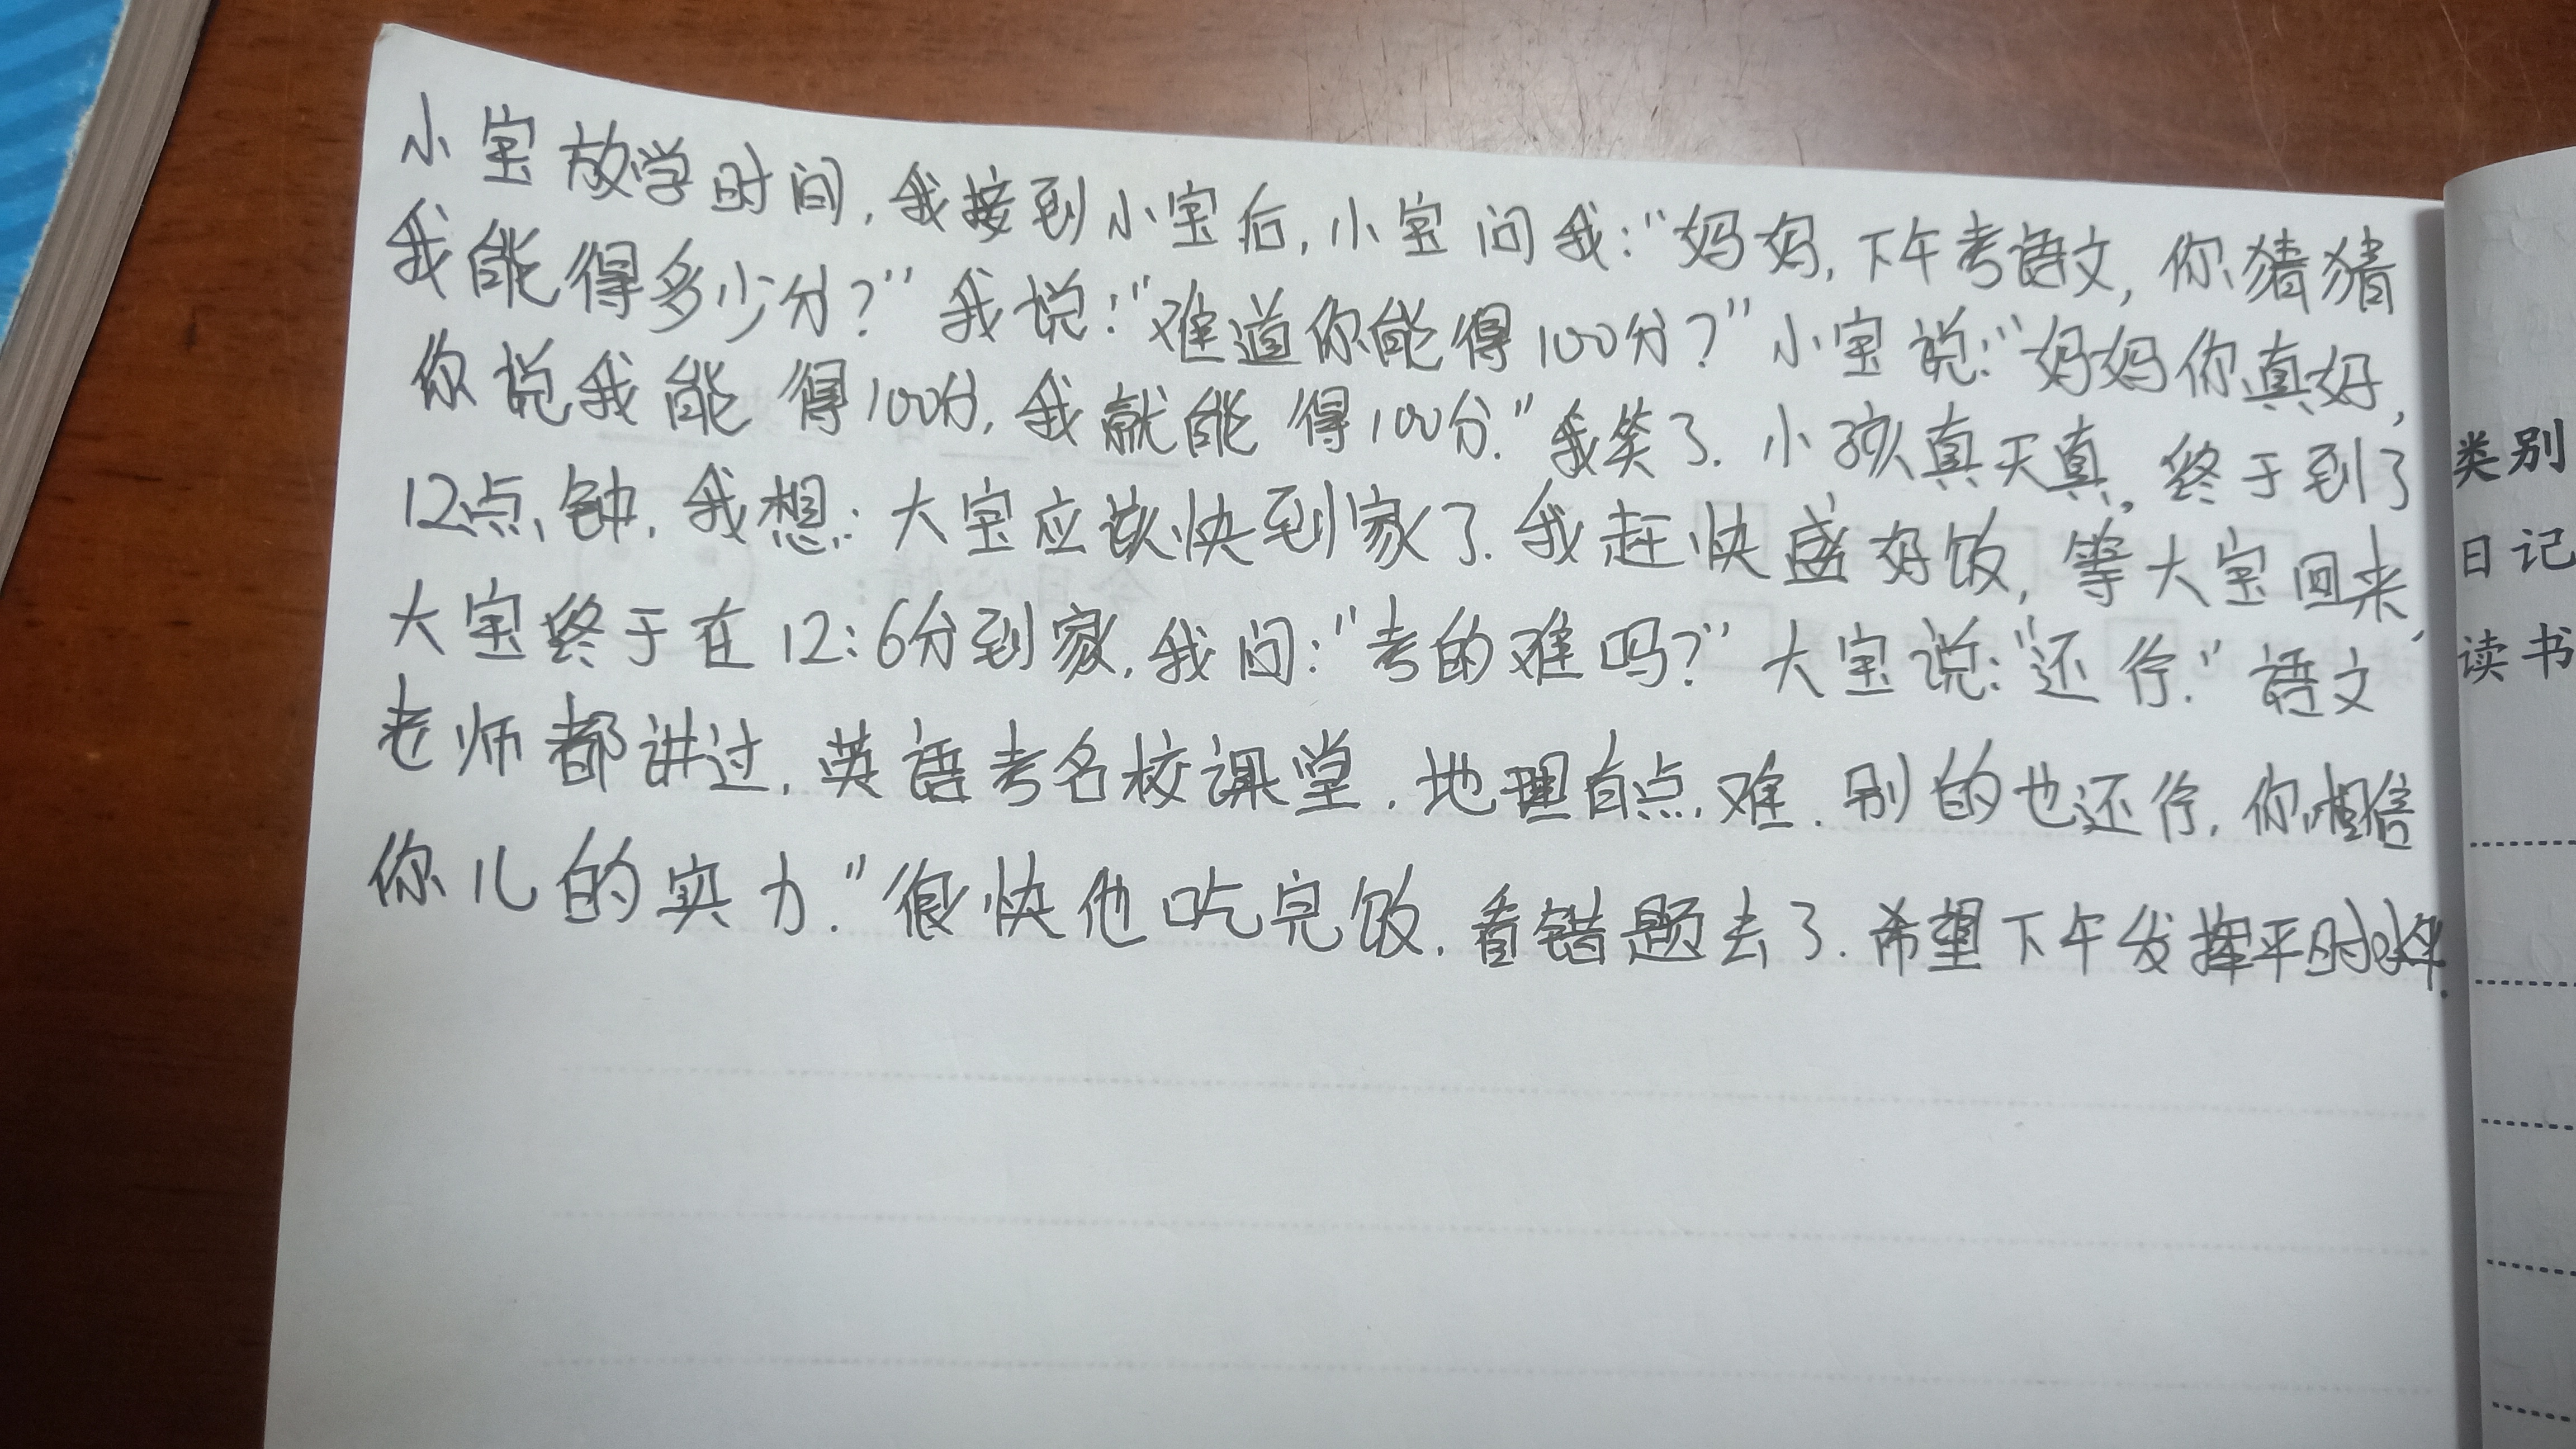 小宝放学时间,我接到小宝后,小宝问我:"妈妈,下午考语文,你猜猜
我能得多少分?"我说:"难道你能得100分?"小宝说:"妈妈你真好,
你说我能得100分,我就能得100分."我笑了.小孩真天真。终于到了
12点钟,我想:大宝应该快到家了.我赶快盛好饭,等大宝回来,
大宝终于在12:6分到家,我问:"考的难吗?"大宝说:"还行."语文
老师都讲过,英语考名校课堂.地理有点难.别的也还行,你相信
你儿的实力."很快他吃完饭,看错题去了.希望下午发挥平时水平.
类别
日记
读书
今日心情: